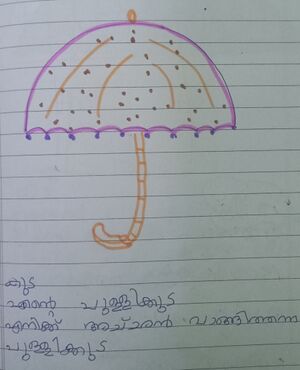 കുട
എന്റെ പുള്ളിക്കുട
എനിക്ക് അച്ഛൻ വാങ്ങിത്തന്ന
പുള്ളിക്കുട